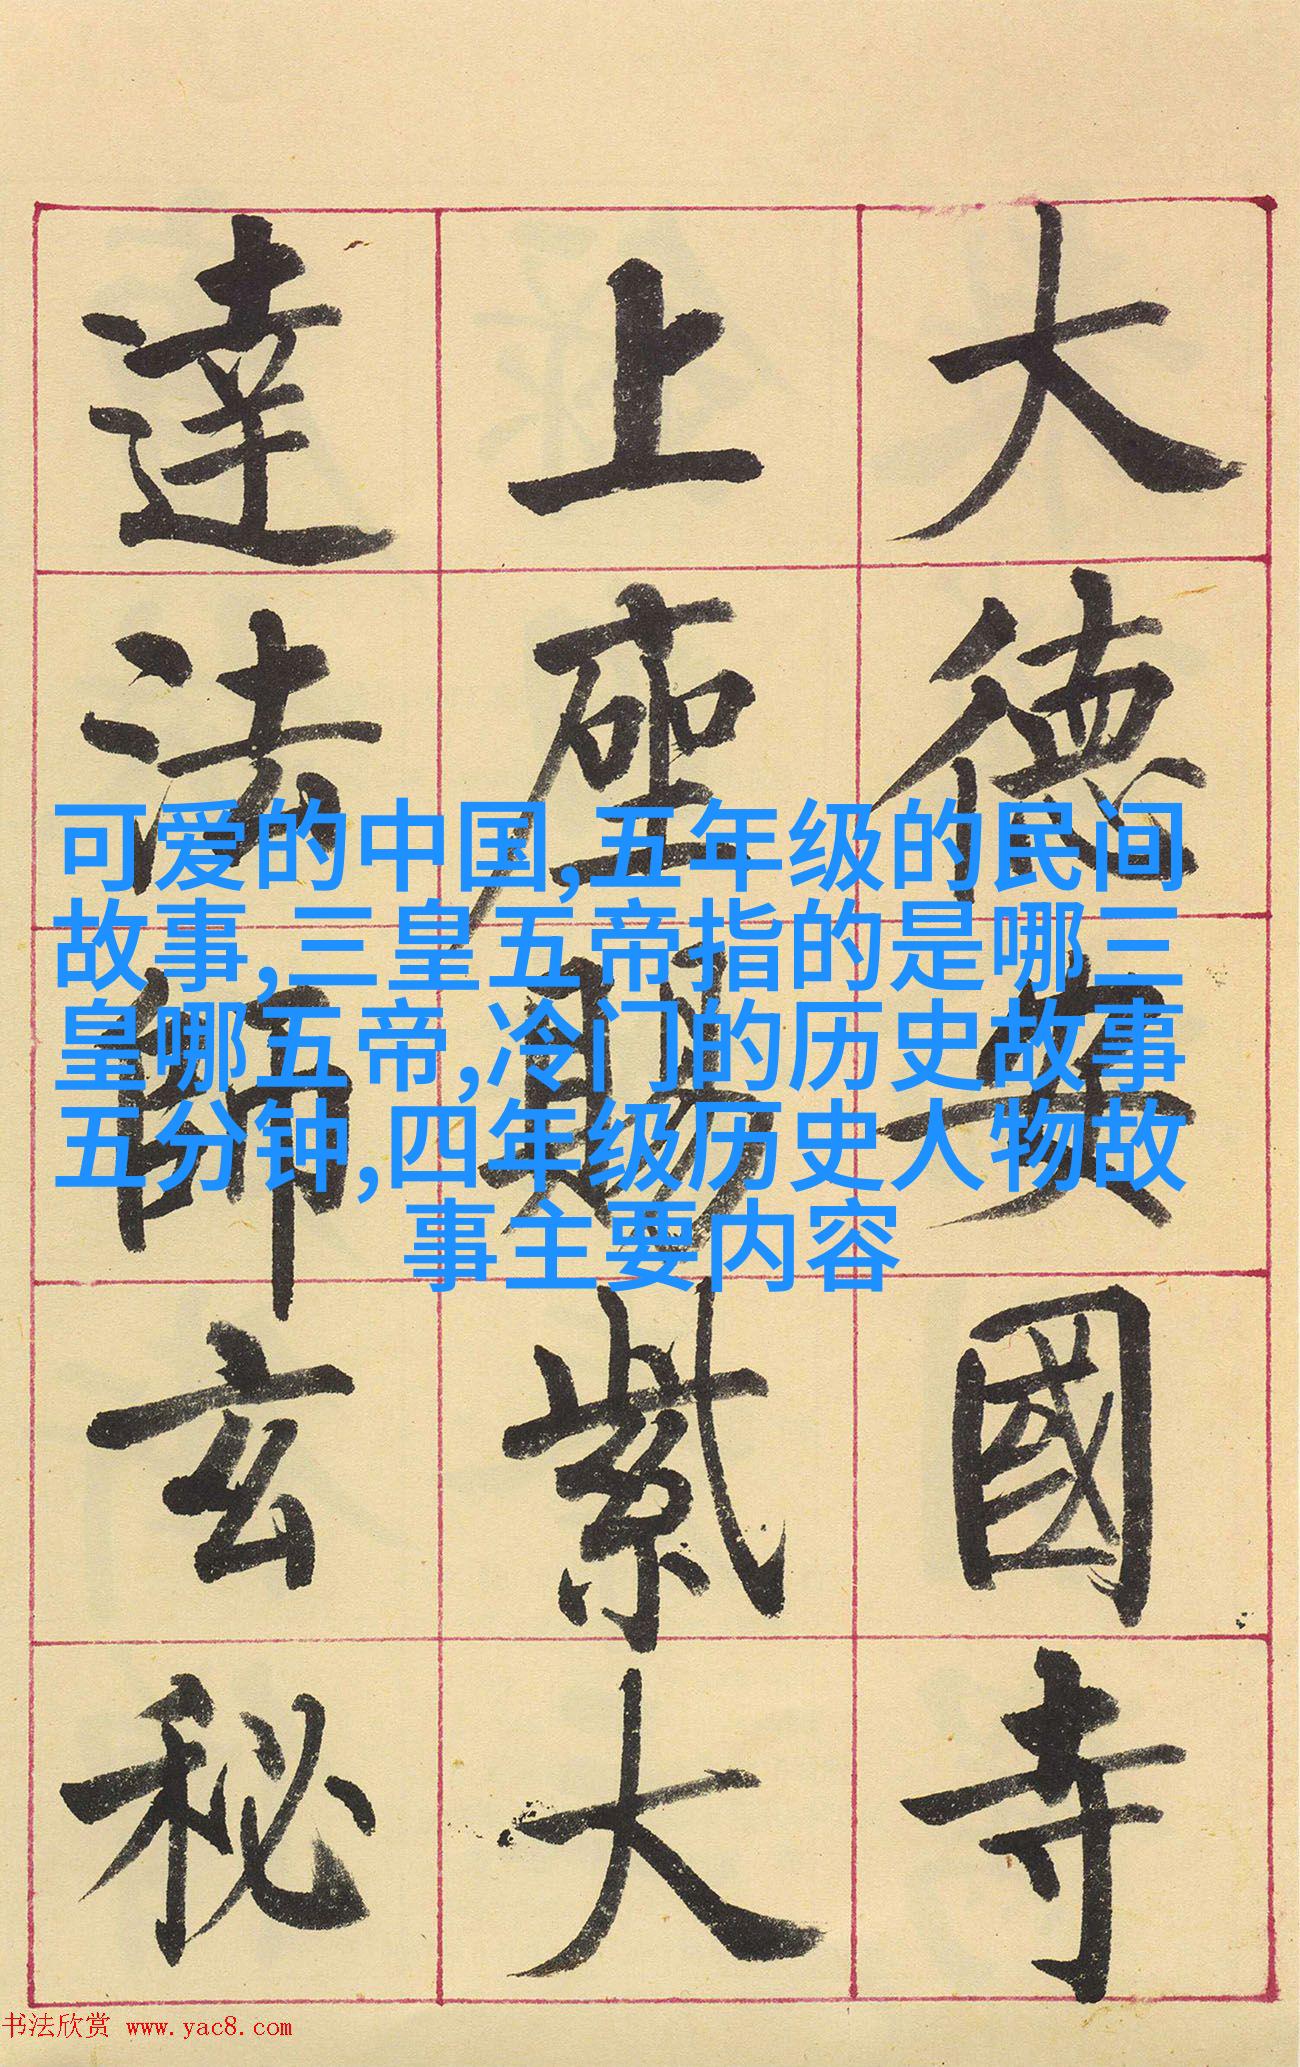 大德安國寺
上座賜紫大
達法師玄秘
可爱的中国,五年级的民间
故事,三皇五帝指的是哪三
皇哪五帝,冷门的历史故事
五分钟,四年级历史人物故
事主要内容
书法欣赏 www.yac8.com